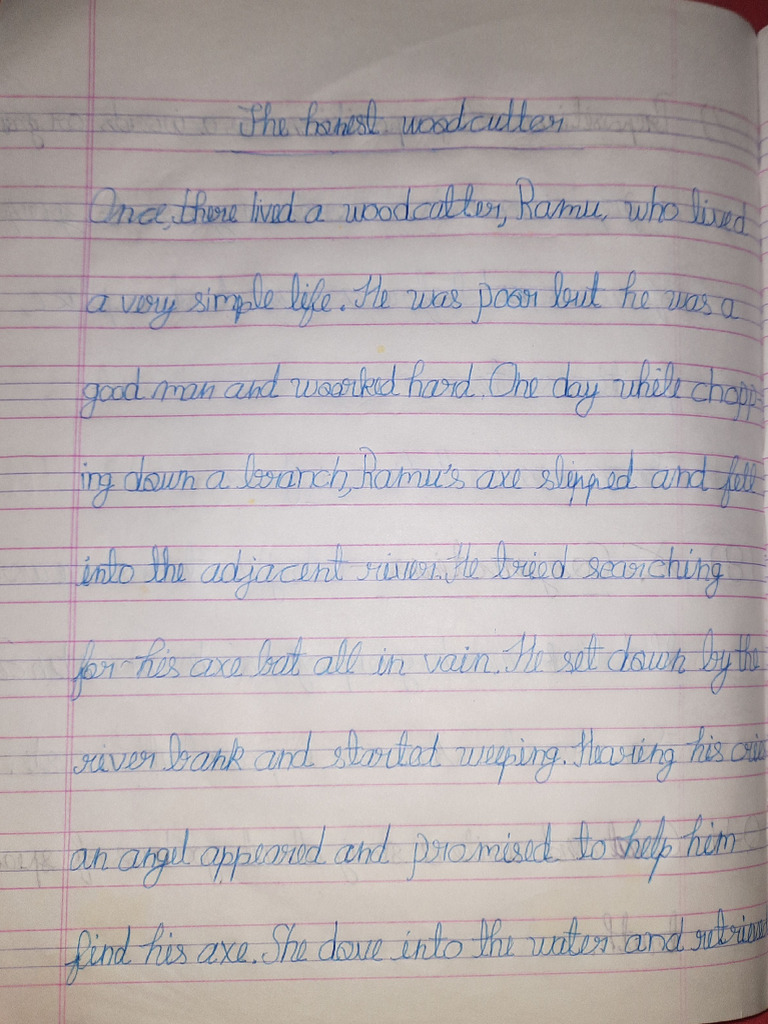 The honest woodcutter
Once, there lived a woodcatter, Ramu, who lived
a very simple life. He was poor but he was a
good man and woorked hard. One day while chopp-
ing down a branch, Ramu's axe slipped and fell
into the adjacent river. He tried searching
for his axe bat all in vain. He set down by the
river bank and startad weeping. Hearing his cries
an angel appeared and promised to help him
find his axe. She dove into the water and retrieved